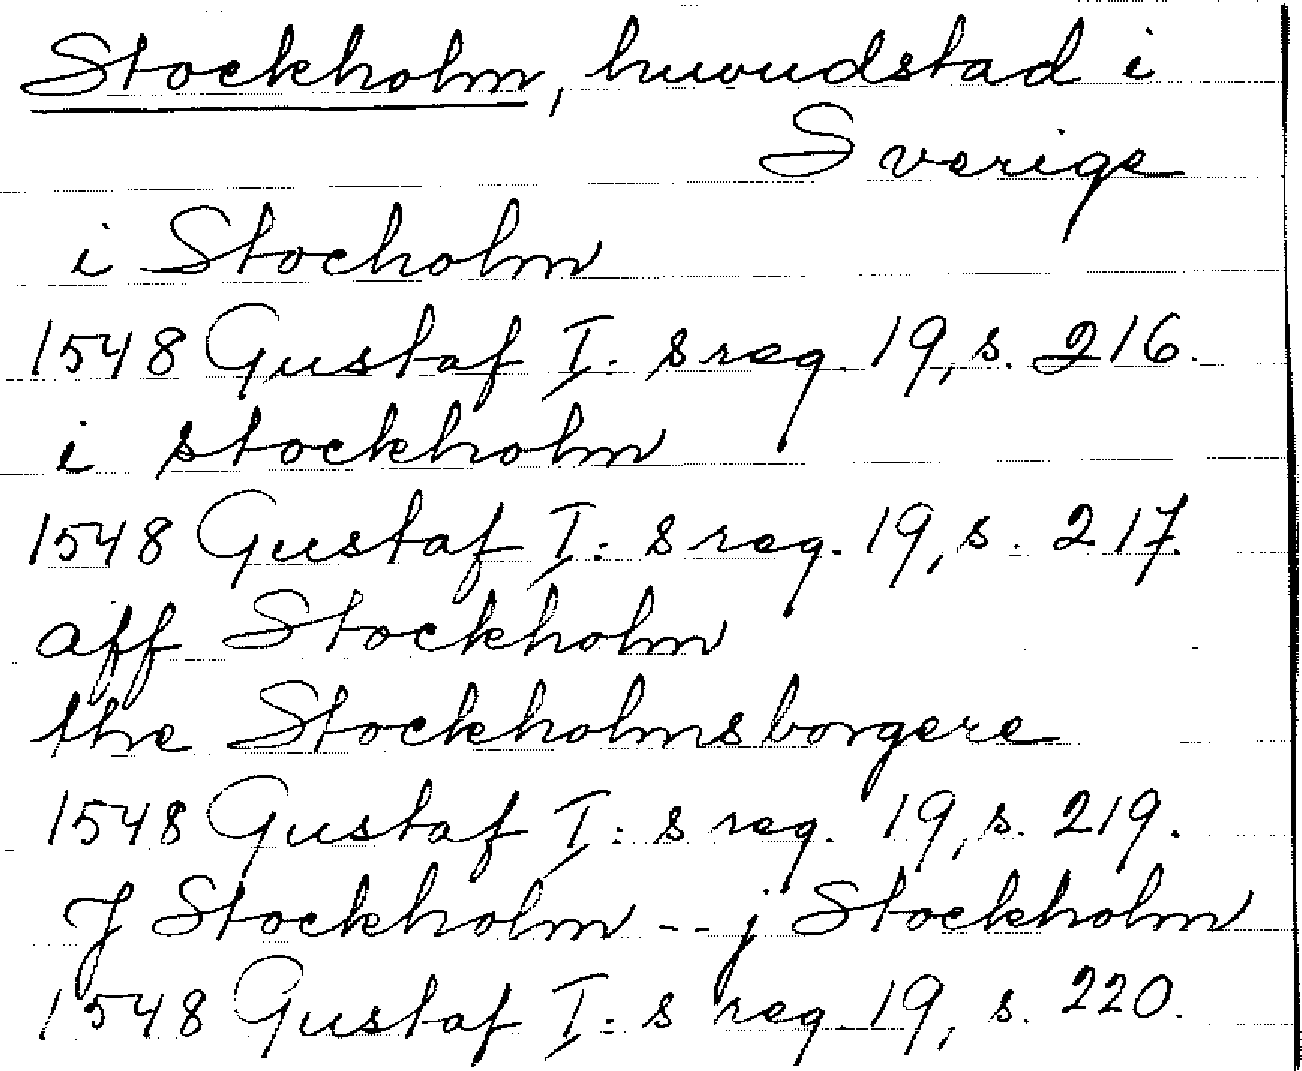 Stockholm, huvudstad i
Sverige
i Stocholm
1548 Gustaf I: s reg. 19, s. 216.
i stockholm
1548 Gustaf I: s reg. 19, s. 217.
aff Stockholm
the Stockholmsborgere
1548 Gustaf I: s reg. 19, s. 219.
J Stockholm -- j Stockholm
1548 Gustaf I: s reg. 19, s. 220.